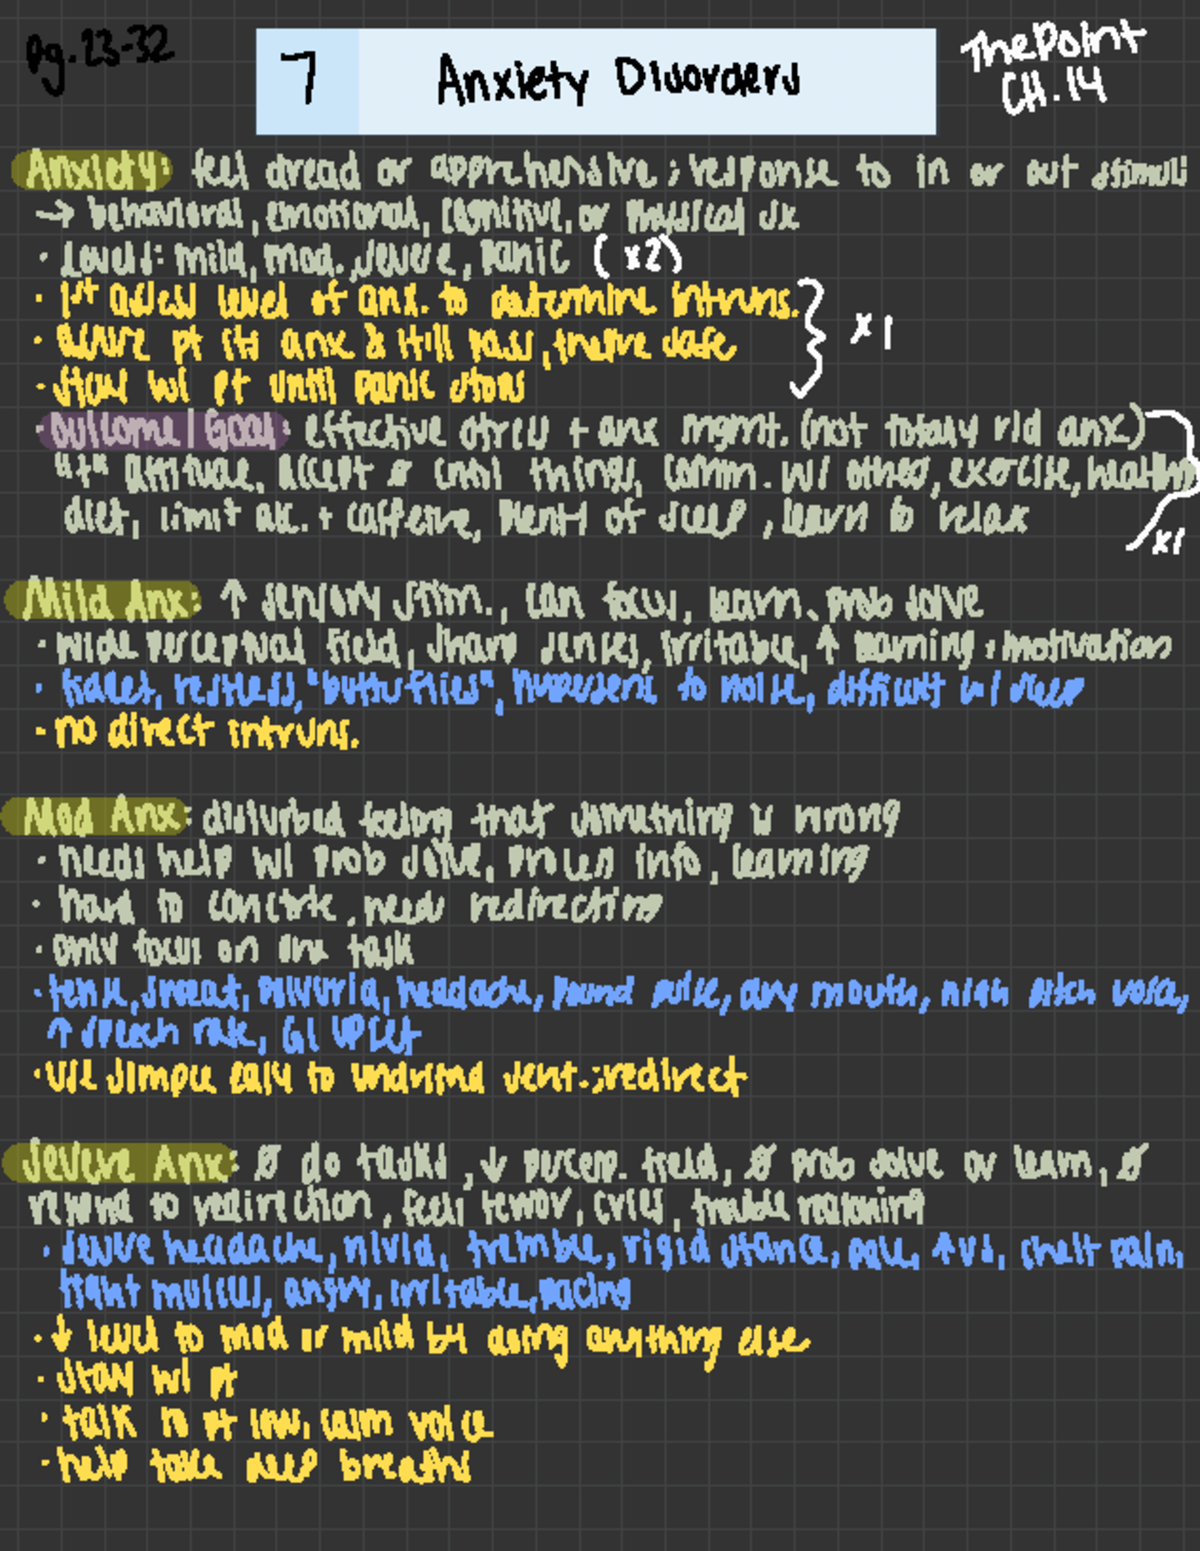 pg. 23-32
7 Anxiety Disorders
ThePoint
CH. 14
Anxiety: feel dread or apprehensive; response to in or out stimuli
→ behavioral, emotional, cognitive, or physical sx
· Levels: mild, mod., severe, panic (x2)
· 1st assess level of anx. to determine intrvns. } x1
· assure pt its anx & itll pass, theyre safe
· stay w/ pt until panic stops
· Outcome/Goal: effective stress + anx mgmt. (not totally rid anx)
"+" attitude, accept ∅ cntrl things, comm. w/ others, exercise, healthy
diet, limit alc. + caffeine, plenty of sleep, learn to relax
x1
Mild Anx: ↑ sensory stim., can focus, learn, prob solve
· wide perceptual field, sharp senses, irritable, ↑ learning + motivation
· fidget, restless, "butterflies", hypersens to noise, difficult w/ sleep
· no direct intrvns.
Mod Anx: disturbed feeling that something is wrong
· needs help w/ prob solve, process info, learning
· hard to conctrte, needs redirecting
· only focus on anx talk
· tense, sweat, polyuria, headache, pound pulse, dry mouth, high pitch voice,
↑ speech rate, GI upset
· use simple easy to undrstnd sent.; redirect
Severe Anx: ∅ do tasks, ↓ percep. field, ∅ prob solve or learn, ∅
respond to redirection, feels terror, cries, trouble reasoning
· severe headache, n/v/d, tremble, rigid stance, pale, ↑VS, chest pain,
tight muscles, angry, irritable, pacing
· ↓ level to mod or mild b4 doing anything else
· stay w/ pt
· talk to pt low, calm voice
· help take deep breaths